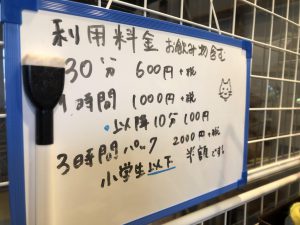 利用料金 お飲み物含む
30分 600円+税
1時間 1000円+税
・以降10分 100円
3時間パック 2000円+税
小学生以下 半額です!